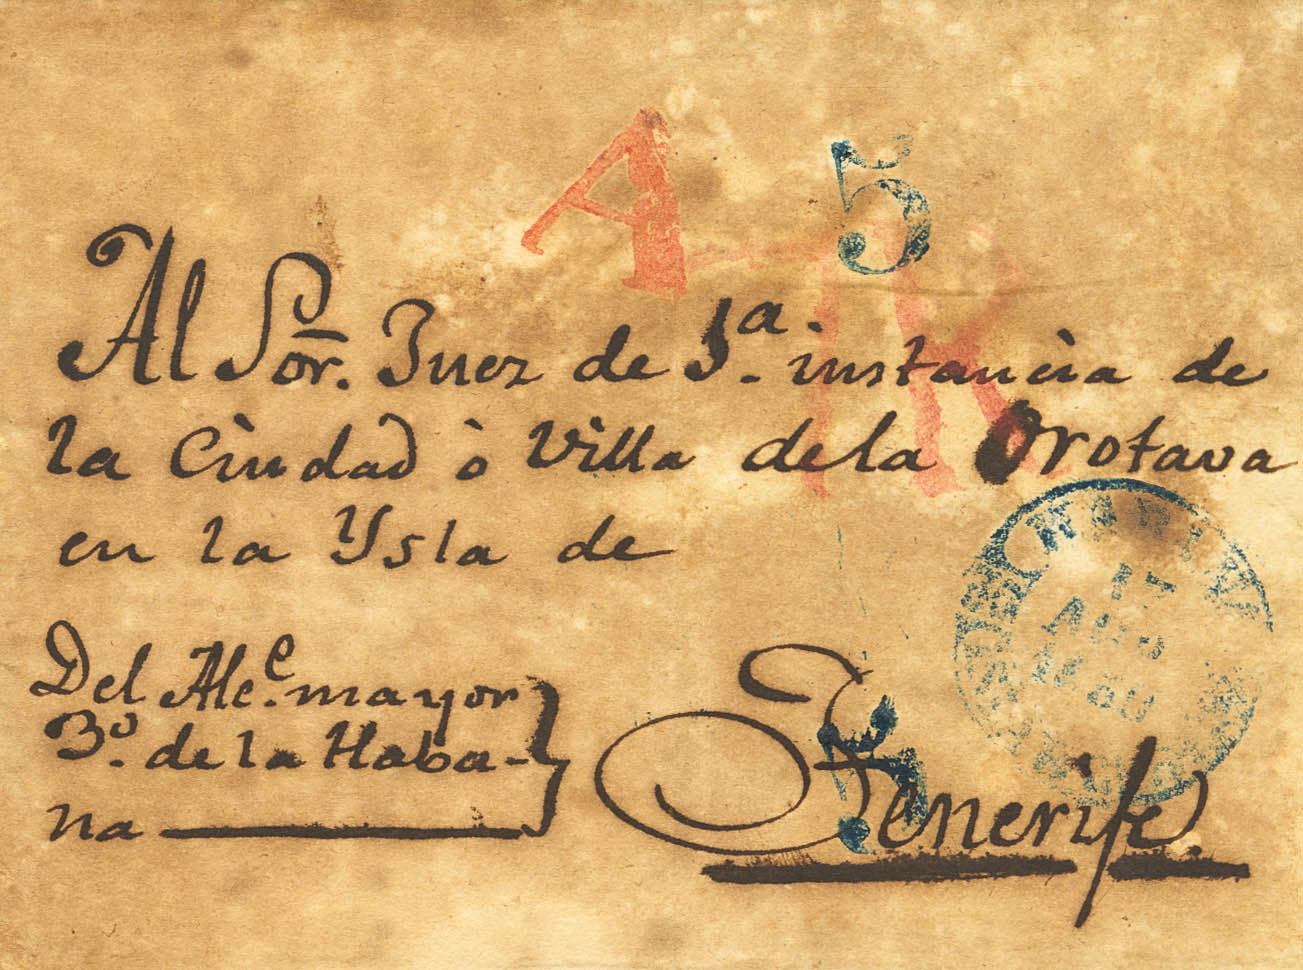 A
5
R
Al Sor. Juez de 1ª. instancia de
la Ciudad ò Villa de la Orotava
en la Ysla de
Tenerife.
Del Alce. mayor
3º. de la Haba-
na
5
17